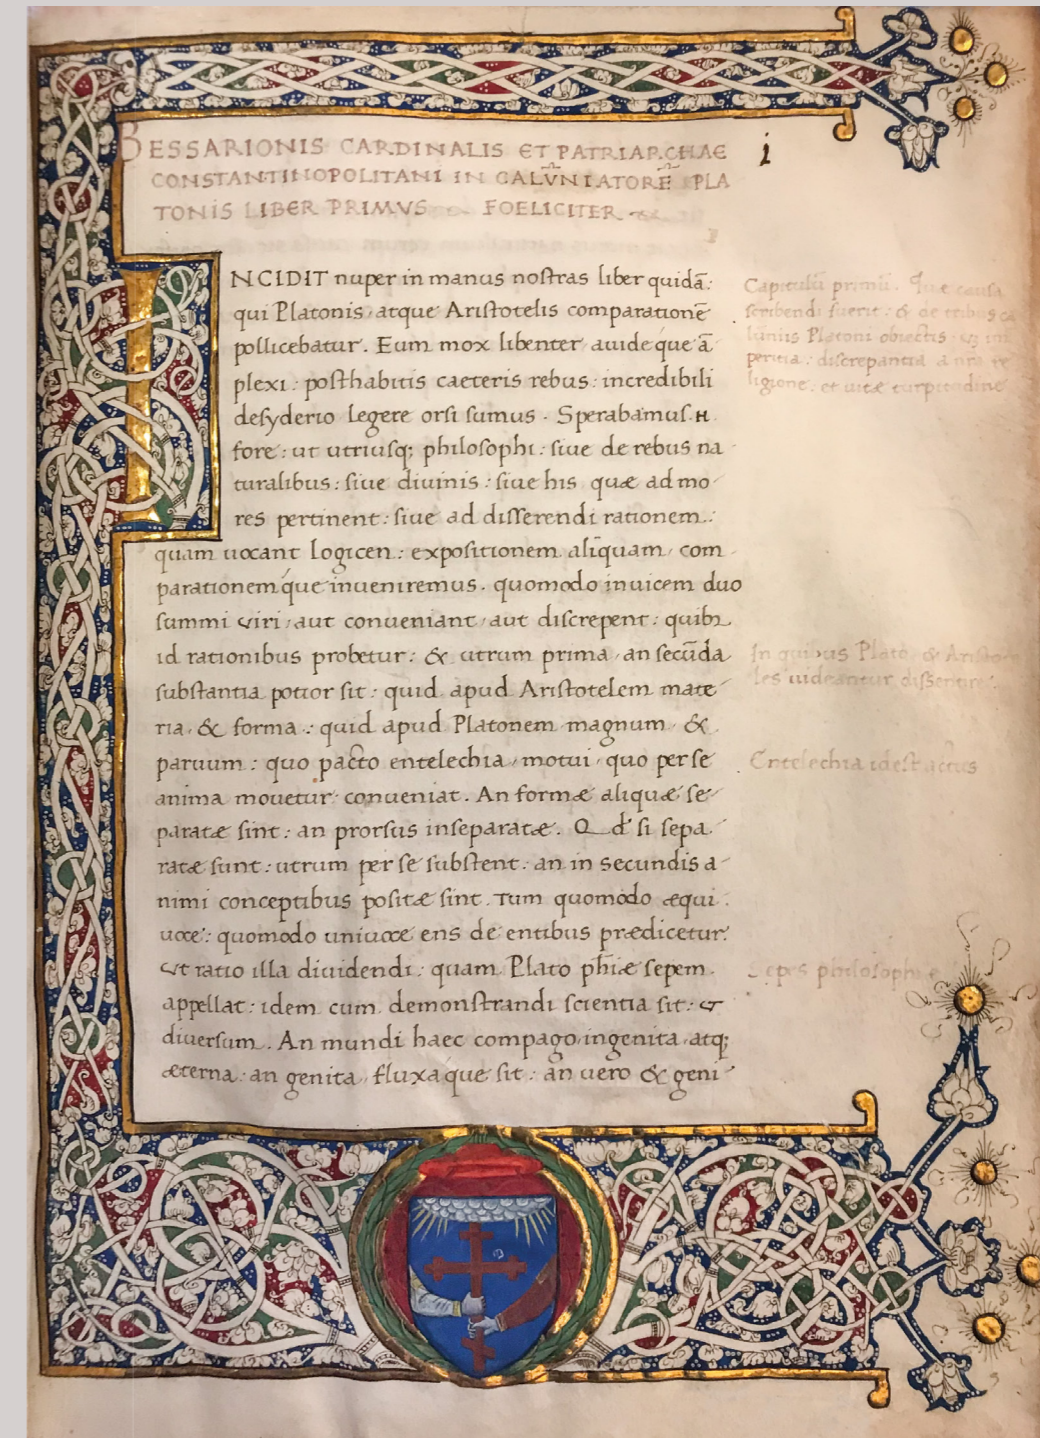 BESSARIONIS CARDINALIS ET PATRIARCHAE
i
CONSTANTINOPOLITANI IN CALŪNIATORĒ PLA
TONIS LIBER PRIMVS FOELICITER
INCIDIT nuper in manus nostras liber quidā:
qui Platonis atque Aristotelis comparationē
pollicebatur. Eum mox libenter auideque ā
plexi: posthabitis caeteris rebus: incredibili
desyderio legere orsi sumus. Sperabamus.n
fore: ut utriusq; philosophi: siue de rebus na
turalibus: siue diuinis: siue his quæ ad mo
res pertinent: siue ad disserendi rationem:
quam uocant logicen: expositionem aliquam com
parationemque inueniremus. quomodo inuicem duo
summi uiri aut conueniant aut discrepent: quibꝫ
id rationibus probetur: & utrum prima an secūda
substantia potior sit: quid apud Aristotelem mate
ria & forma: quid apud Platonem magnum &
paruum: quo pacto entelechia motui quo per se
anima mouetur conueniat. An formæ aliquæ se
paratæ sint: an prorsus inseparatæ. Qd' si sepa
ratæ sunt: utrum per se substent: an in secundis a
nimi conceptibus positæ sint. Tum quomodo æqui
uoce: quomodo uniuoce ens de entibus prædicetur.
Ut ratio illa diuidendi: quam Plato ph̄iæ sepem
appellat: idem cum demonstrandi scientia sit: &
diuersum. An mundi haec compago ingenita atq;
æterna: an genita fluxáque sit: an uero & geni
Capitulū primū. Quæ causa
scribendi fuerit: & de tribus ca
lūniis Platoni obiectis
peritia: discrepantia a nr̄a re
ligione: et uitæ turpitudine
In quibus Plato & Aristo
les uideantur dissentire
Entelechia idest actus
Sepes philosophiæ